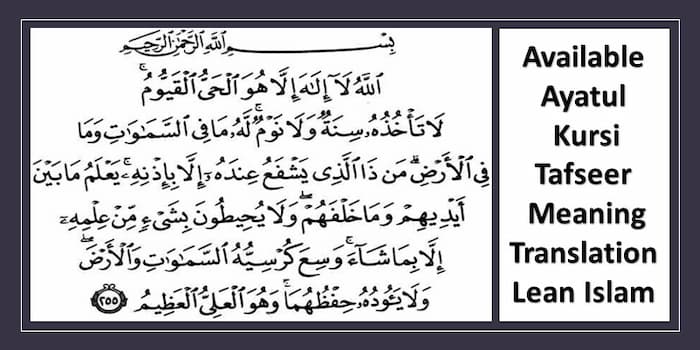 بِسْمِ اللَّهِ الرَّحْمَٰنِ الرَّحِيمِ
اللَّهُ لَآ إِلَٰهَ إِلَّا هُوَ الْحَيُّ الْقَيُّومُ ۚ
لَا تَأْخُذُهُۥ سِنَةٌ وَلَا نَوْمٌ ۚ لَّهُۥ مَا فِي السَّمَٰوَٰتِ وَمَا
فِي الْأَرْضِ ۗ مَن ذَا الَّذِي يَشْفَعُ عِندَهُۥٓ إِلَّا بِإِذْنِهِۦ ۚ يَعْلَمُ مَا بَيْنَ
أَيْدِيهِمْ وَمَا خَلْفَهُمْ ۖ وَلَا يُحِيطُونَ بِشَيْءٍ مِّنْ عِلْمِهِۦٓ
إِلَّا بِمَا شَآءَ ۚ وَسِعَ كُرْسِيُّهُ السَّمَٰوَٰتِ وَالْأَرْضَ ۖ
وَلَا يَـُٔودُهُۥ حِفْظُهُمَا ۚ وَهُوَ الْعَلِيُّ الْعَظِيمُ ٢٥٥
Available
Ayatul
Kursi
Tafseer
Meaning
Translation
Lean Islam